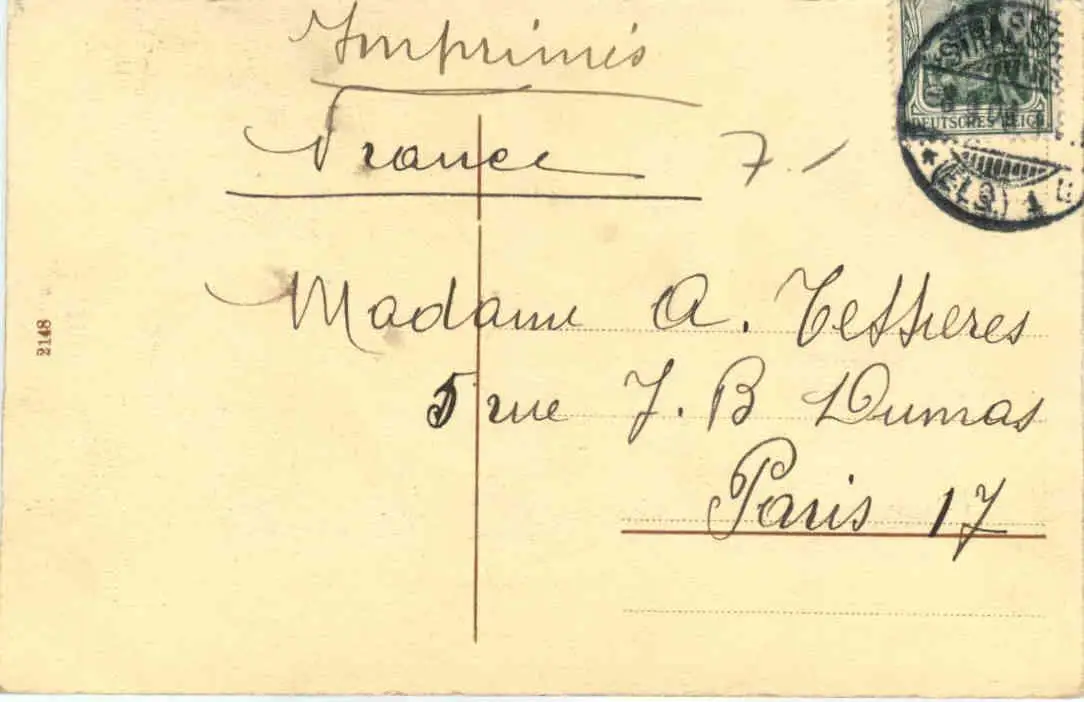 Imprimés
France 7.
DEUTSCHES REICH
(ELS.) 1
2148
Madame A. Tessieres
5 rue J. B Dumas
Paris 17